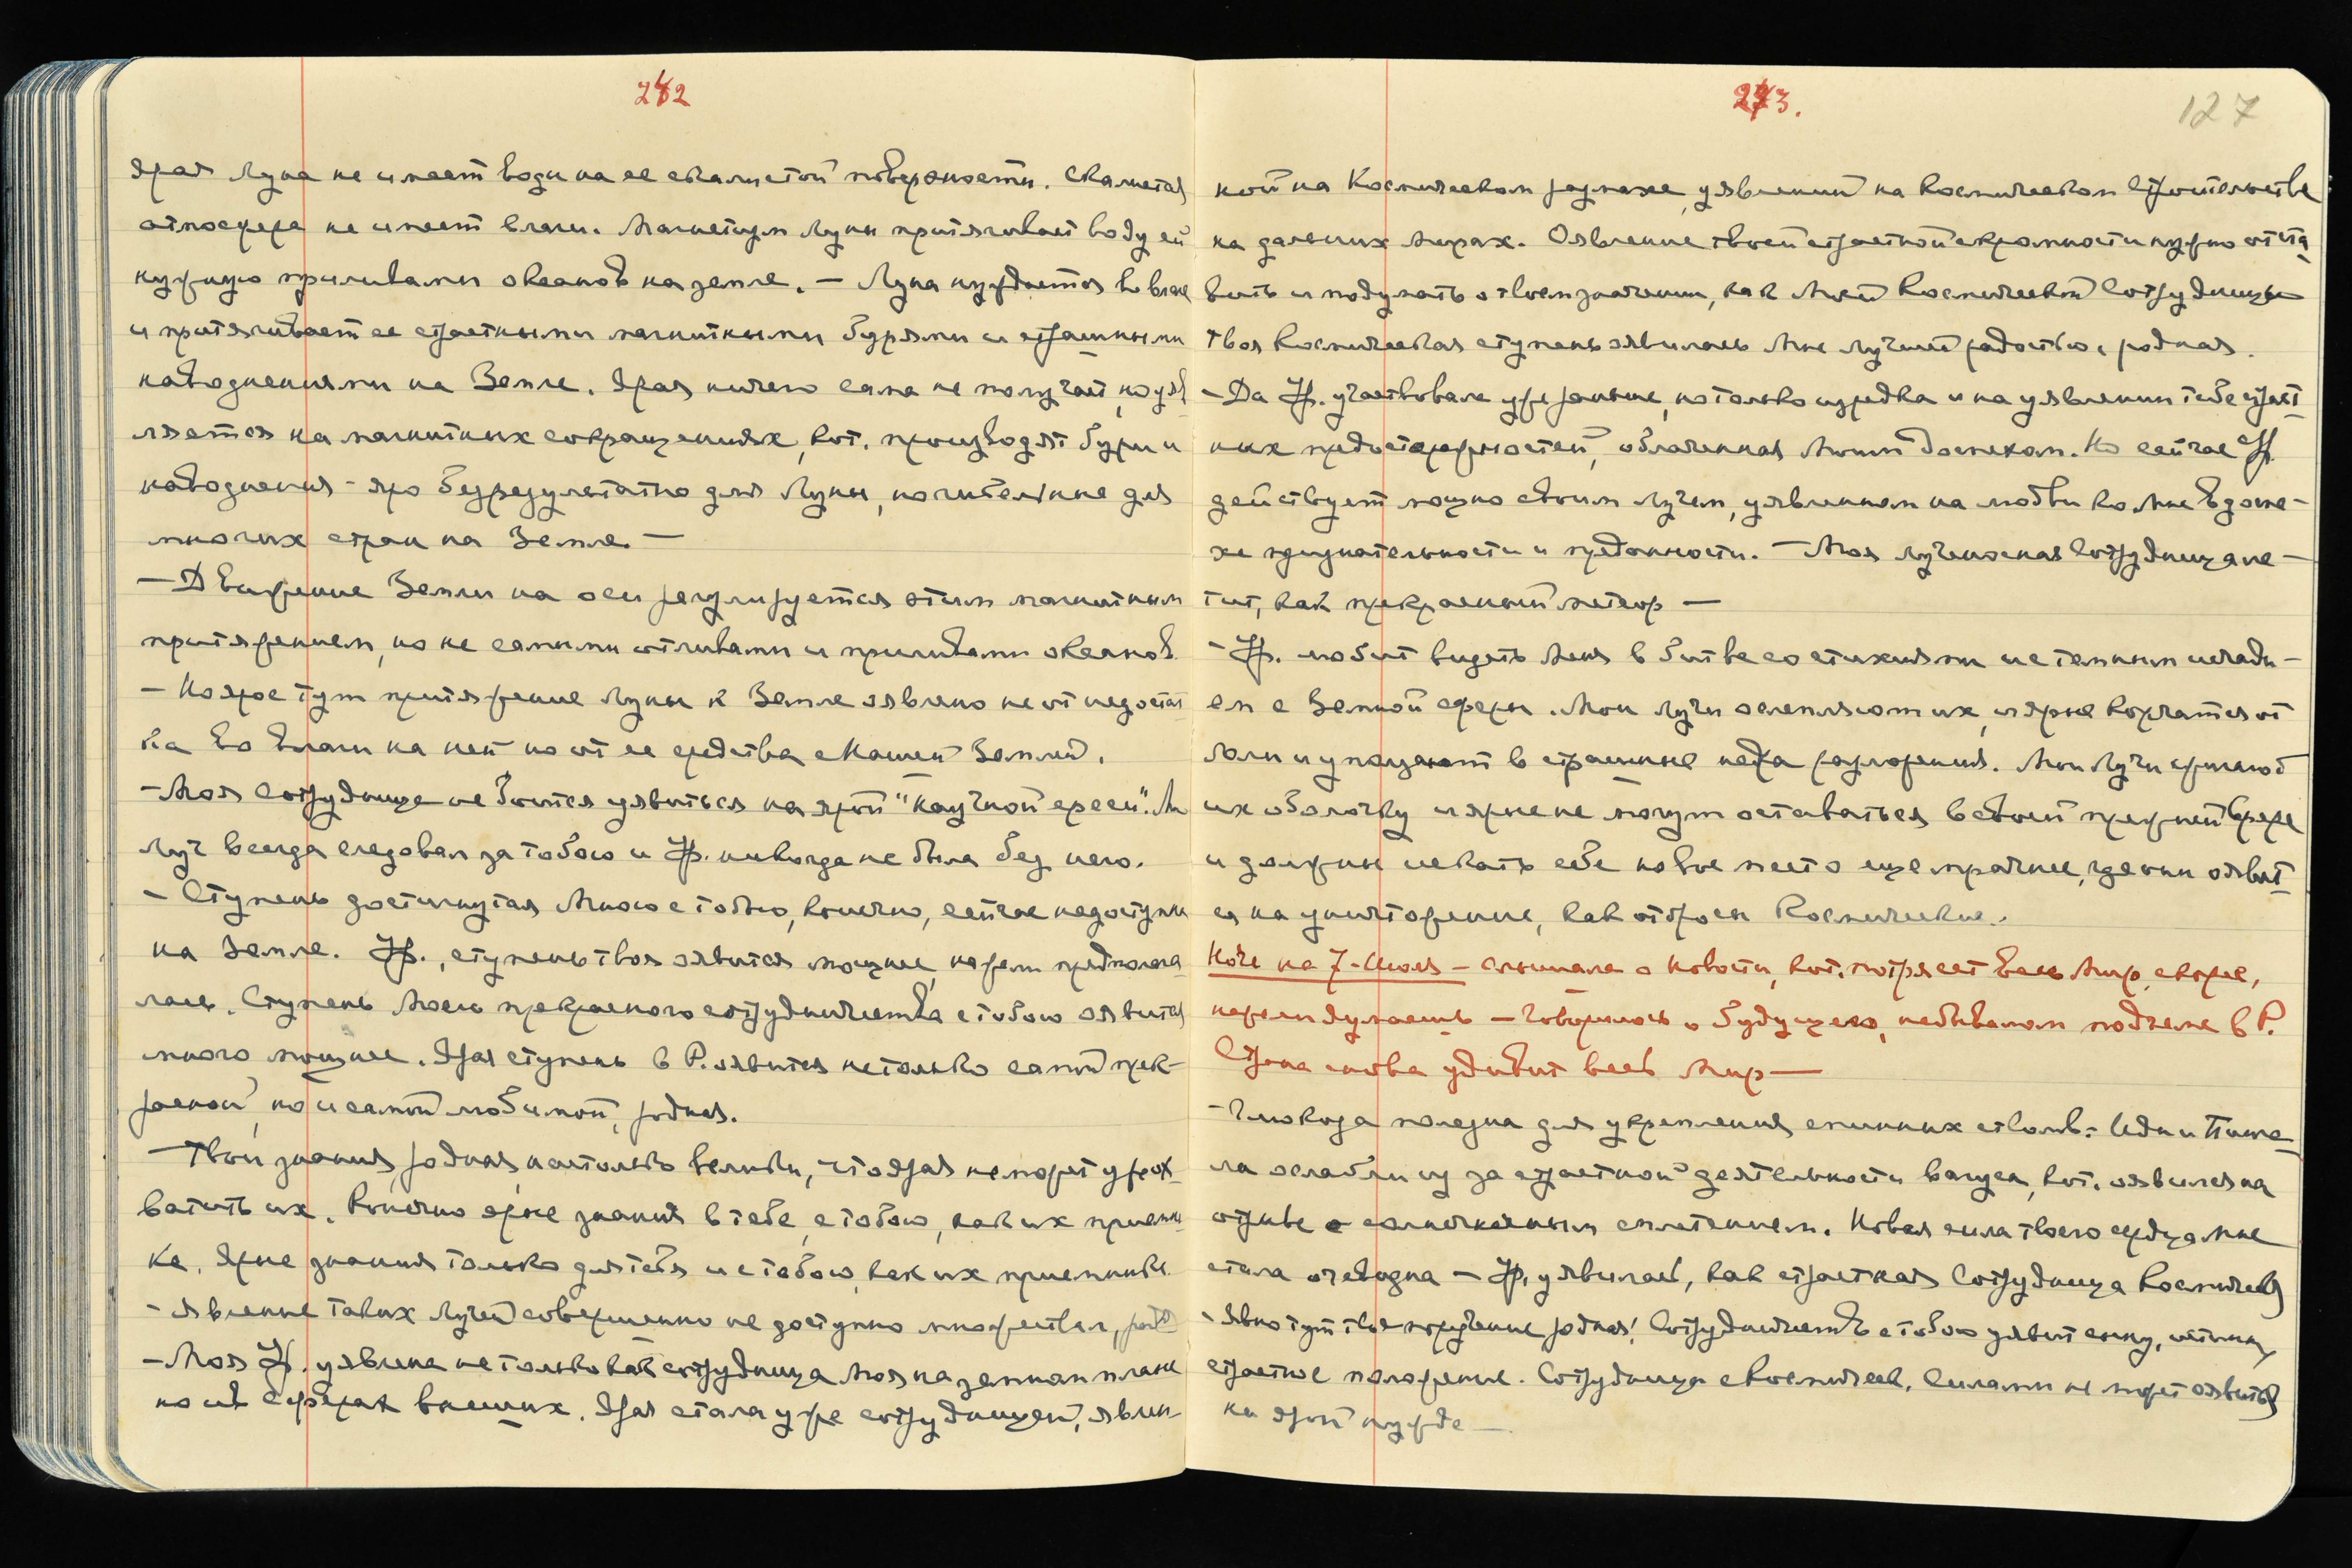 242
ярая Луна не имеет воды на ее скалистой поверхности. Скалистая
атмосфера не имеет влаги. Магнетизм Луны притягивает воду ей
нужную приливами океанов на земле. — Луна нуждается во влаге
и притягивает ее страстными магнитными бурями и страшными
наводнениями на Земле. Ярая ничего сама не получает, но уяв
ляется на магнитных сокращениях, кот. производят бури и
наводнения – яро безрезультатно для Луны, но губительные для
многих стран на Земле. —
— Движение Земли на оси регулируется этим магнитным
притяжением, но не самими отливами и приливами океанов.
— Но ярое тут притяжение Луны к Земле явлено не от недостат
ка во влаги на ней но от ее сродства с Нашей Землей.
– Моя сотрудница не боится уявиться на ярой "научной ереси".
Луч всегда следовал за тобою и Ур. никогда не была без него.
– Ступень достигнутая Мною с тобою, конечно, сейчас недоступна
на Земле. Ур., ступень твоя явится мощнее, нежели предполага
лась. Ступень Моего прекрасного сотрудничества с тобою явится
много мощнее. Ярая ступень в Р. явится не только самой прек-
расной, но и самой любимой, родная.
– Твои знания, родная, настолько велики, что ярая не может уже ох
ватить их. Конечно ярые знания в тебе, с тобою, как их приемни
ка. Ярые знания только для тебя и с тобою, как их приемника.
– Явление таких Лучей совершенно не доступно множествам,
– Моя Ур. уявлена не только как сотрудница Моя на земном плане
но и в Сферах высших. Ярая стала уже сотрудницей, явлен-
243.
127
ной на Космическом размахе, уявлений на Космическом Строительстве
на дальних мирах. Оявление твоей страстной скромности нужно оста
вить и подумать о твоем значении, как Моей Космической Сотрудницы
Твоя Космическая ступень оявилась Мне лучшей радостью, родная.
– Да Ур. участвовала уже раньше, но только изредка и на уявлении тебе страст
ных предосторожностей, облаченная Моим доспехом. Но сейчас Ур.
действует мощно своим лучом, уявленном на любви ко Мне в доспе-
хе признательности и преданности. – Моя лученосная Сотрудница ле-
тит, как прекрасный метеор —
– Ур. любит видеть Меня в битве со стихиями и с темным исчади-
ем с Земной сферы. Мои Лучи ослепляют их, и ярые корчатся от
боли и уползают в страшные недра разложения. Мои Лучи сжигают
их оболочку и ярые не могут оставаться в своей прежней сфере
и должны искать себе новое место еще мрачнее, где они оявят
ся на уничтожение, как отбросы Космические.
Ночь на 7-Июля – слышала о новости, кот. потрясет весь Мир, скорее,
нежели думаешь – говорилось о будущего, небывалом подъеме в Р.
Страна снова удивит весь Мир —
– Глюкоза полезна для укрепления спинных стволв. – Иды и Пинга
ла ослабли из за страстной деятельности вагуса, кот. оявился на
отрыве с солнечным сплетением. Новая сила твоего сердца Мне
стала очевидна – Ур. уявилась, как страстная Сотрудница Космическ
– Явно тут твое поручение родная! Сотрудничеств с тобою уявит
страстное положение. Сотрудница с Космическ. Силами не может оявиться
на ярой нужде —